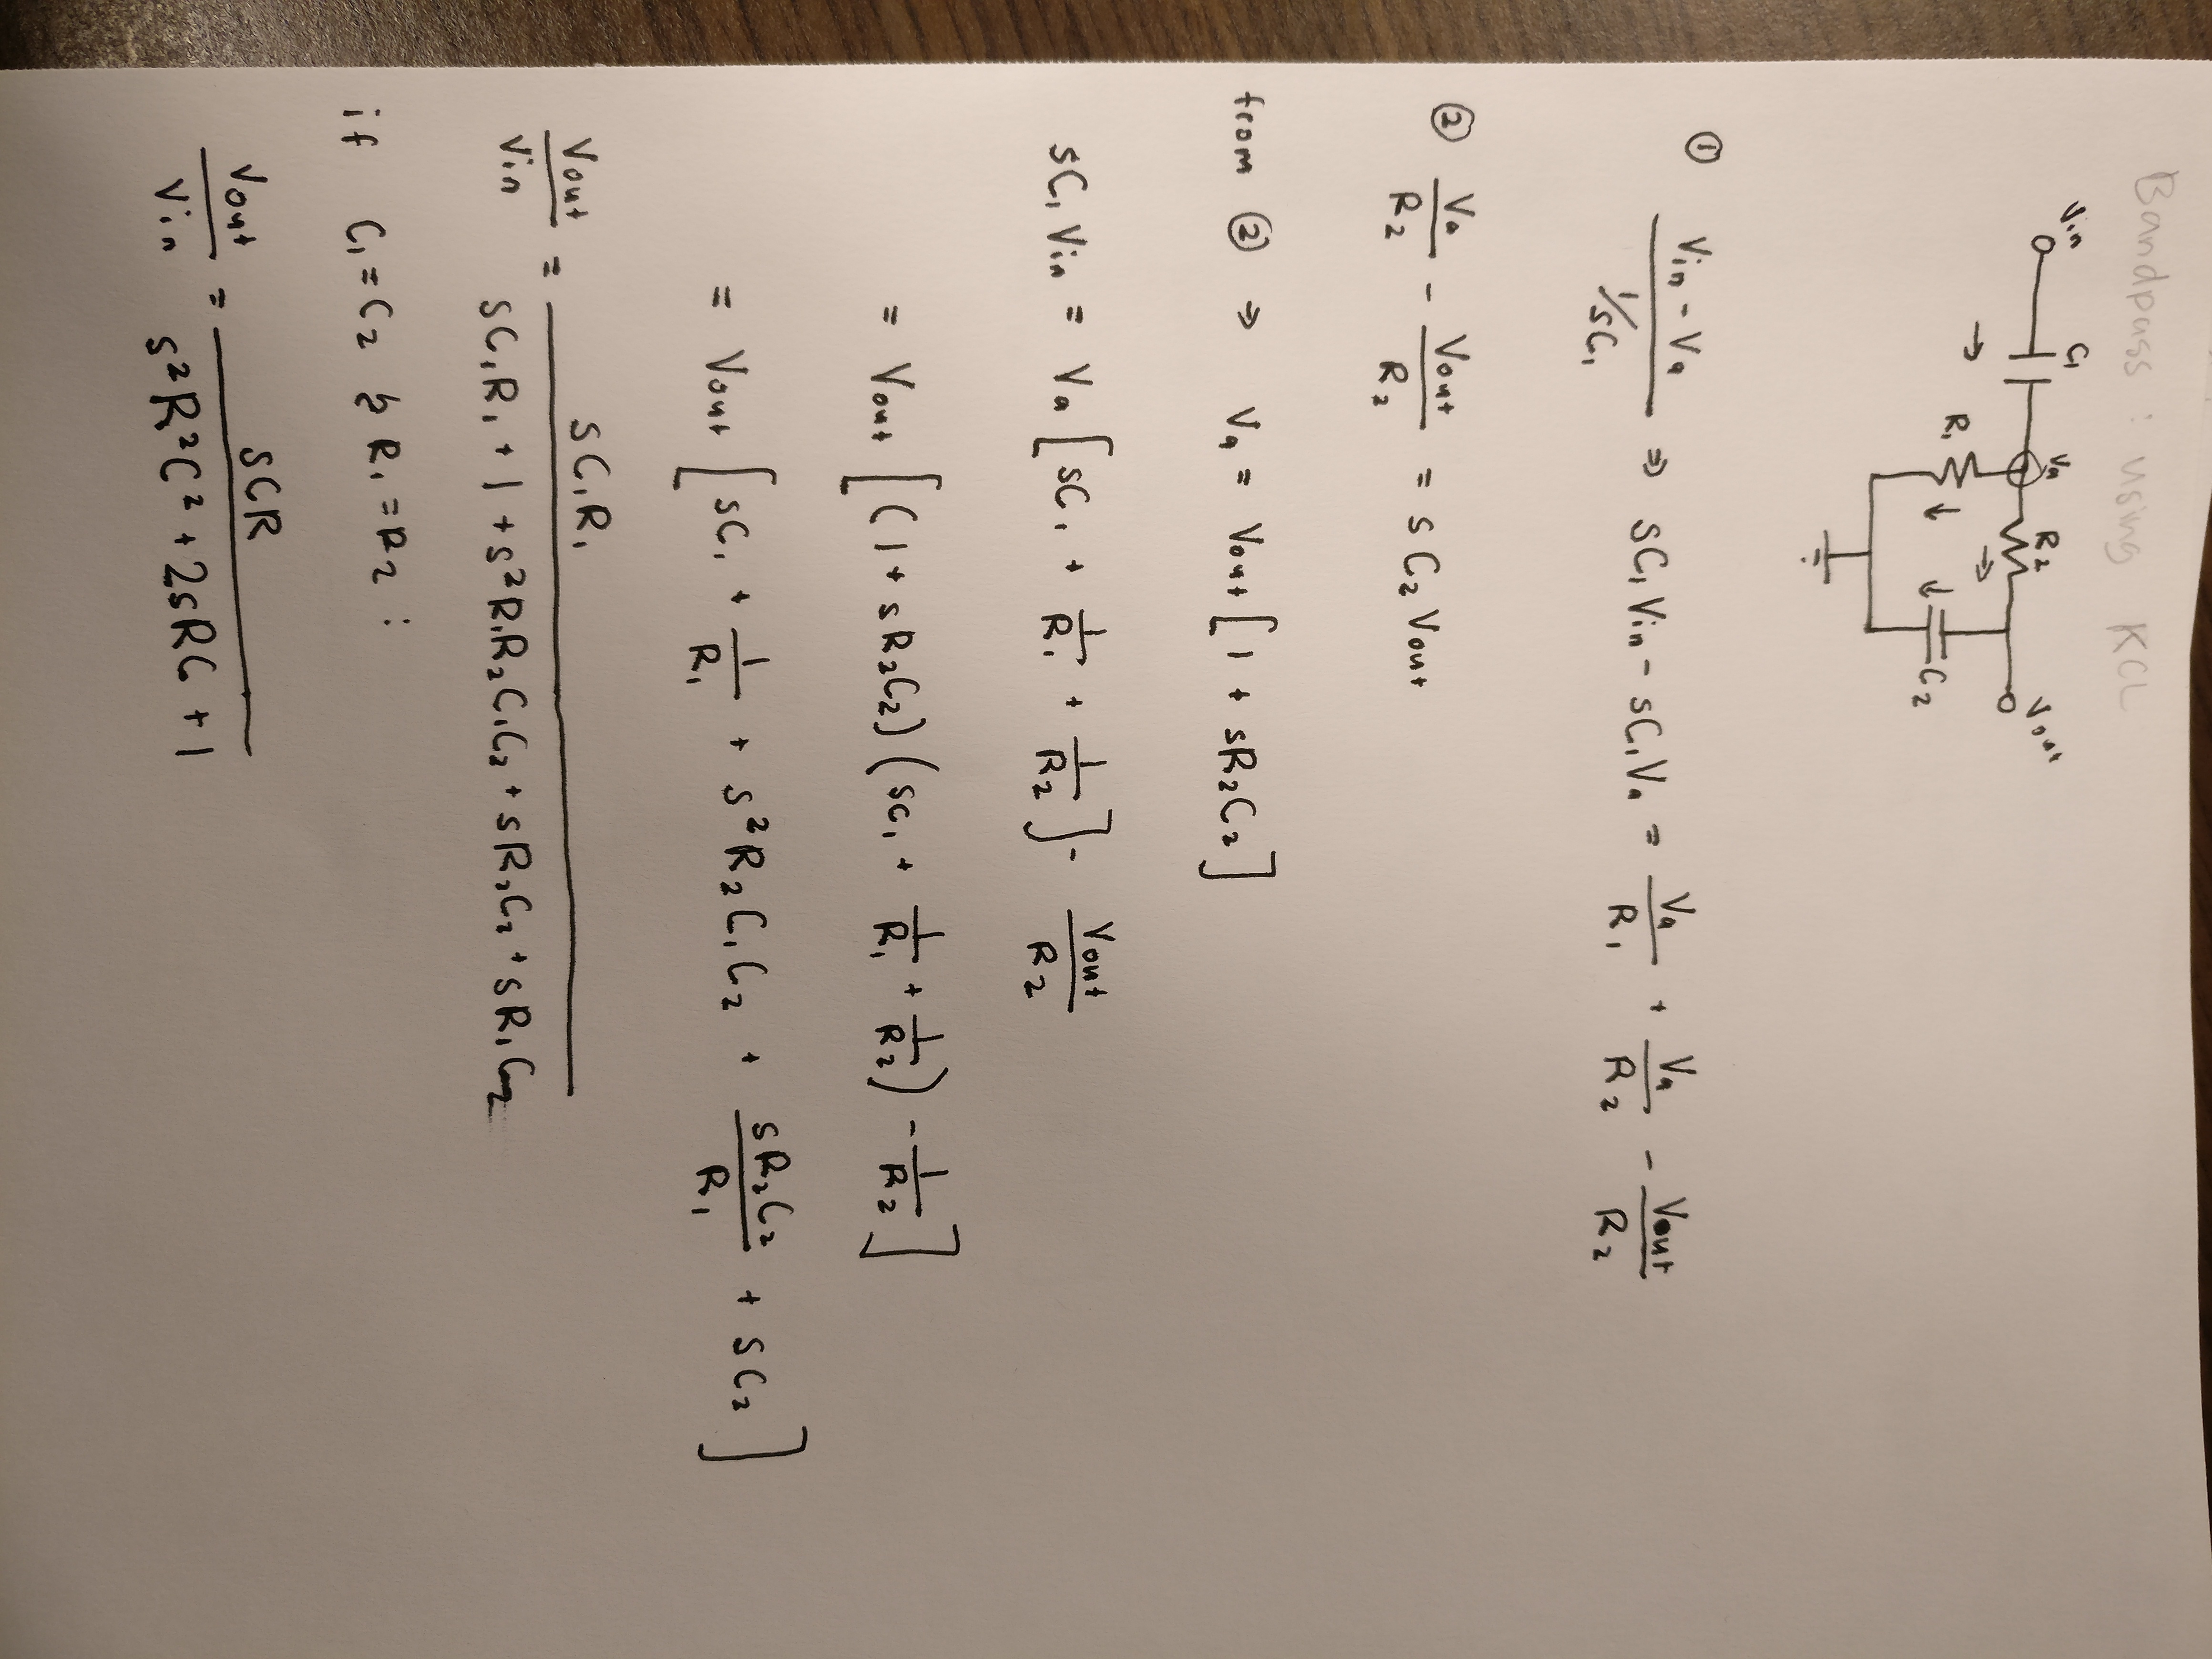 Bandpass : using KCL
Vin C₁ Va R₂ Vout
R₁ C₂
① (Vin - Va)/(1/sC₁) ⇒ sC₁Vin - sC₁Va = Va/R₁ + Va/R₂ - Vout/R₂
② Va/R₂ - Vout/R₂ = sC₂Vout
from ② → Va = Vout[1 + sR₂C₂]
sC₁Vin = Va[sC₁ + 1/R₁ + 1/R₂] - Vout/R₂
= Vout[(1 + sR₂C₂)(sC₁ + 1/R₁ + 1/R₂) - 1/R₂]
= Vout[sC₁ + 1/R₁ + s²R₂C₁C₂ + sR₂C₂/R₁ + sC₂]
Vout/Vin = sC₁R₁/(sC₁R₁ + 1 + s²R₁R₂C₁C₂ + sR₂C₂ + sR₁C₂)
if C₁=C₂ & R₁=R₂ :
Vout/Vin = sCR/(s²R²C² + 2sRC + 1)